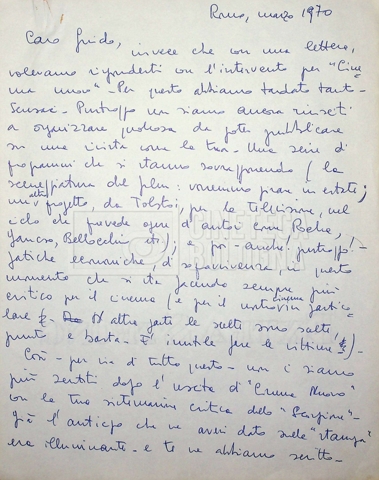 Roma, marzo 1970
Caro Guido,
invece che con una lettera,
volevamo risponderti con l'intervento per "Cine
ma nuovo" - Per questo abbiamo tardato tanto -
Scusaci - Purtroppo non siamo ancora riusciti
a organizzare qualcosa da poter pubblicare
su una rivista come la tua - Una serie di
programmi che si stanno sovrapponendo (la
sceneggiatura del film: vorremmo girare in estate;
un altro progetto, da Tolstoi, per la televisione, nel
ciclo che prevede opere d'autori come
Jancso, Bellocchio etc; e poi - anche! purtroppo! -
fatiche economiche, di sopravvivenza, in questo
momento che si sta facendo sempre più
critico per il cinema (e per il nostro cinema in partico
lare). D'altra parte le scelte sono scelte
punto e basta. È inutile fare le vittime!) -
Così - per via di tutto questo - non ci siamo
più sentiti dopo l'uscita di "Cinema Nuovo"
con la tua sistemazione critica dello "Scorpione" -
Già l'anticipo che ne avevi dato sulla "Stampa"
era illuminante - e te ne abbiamo scritto -